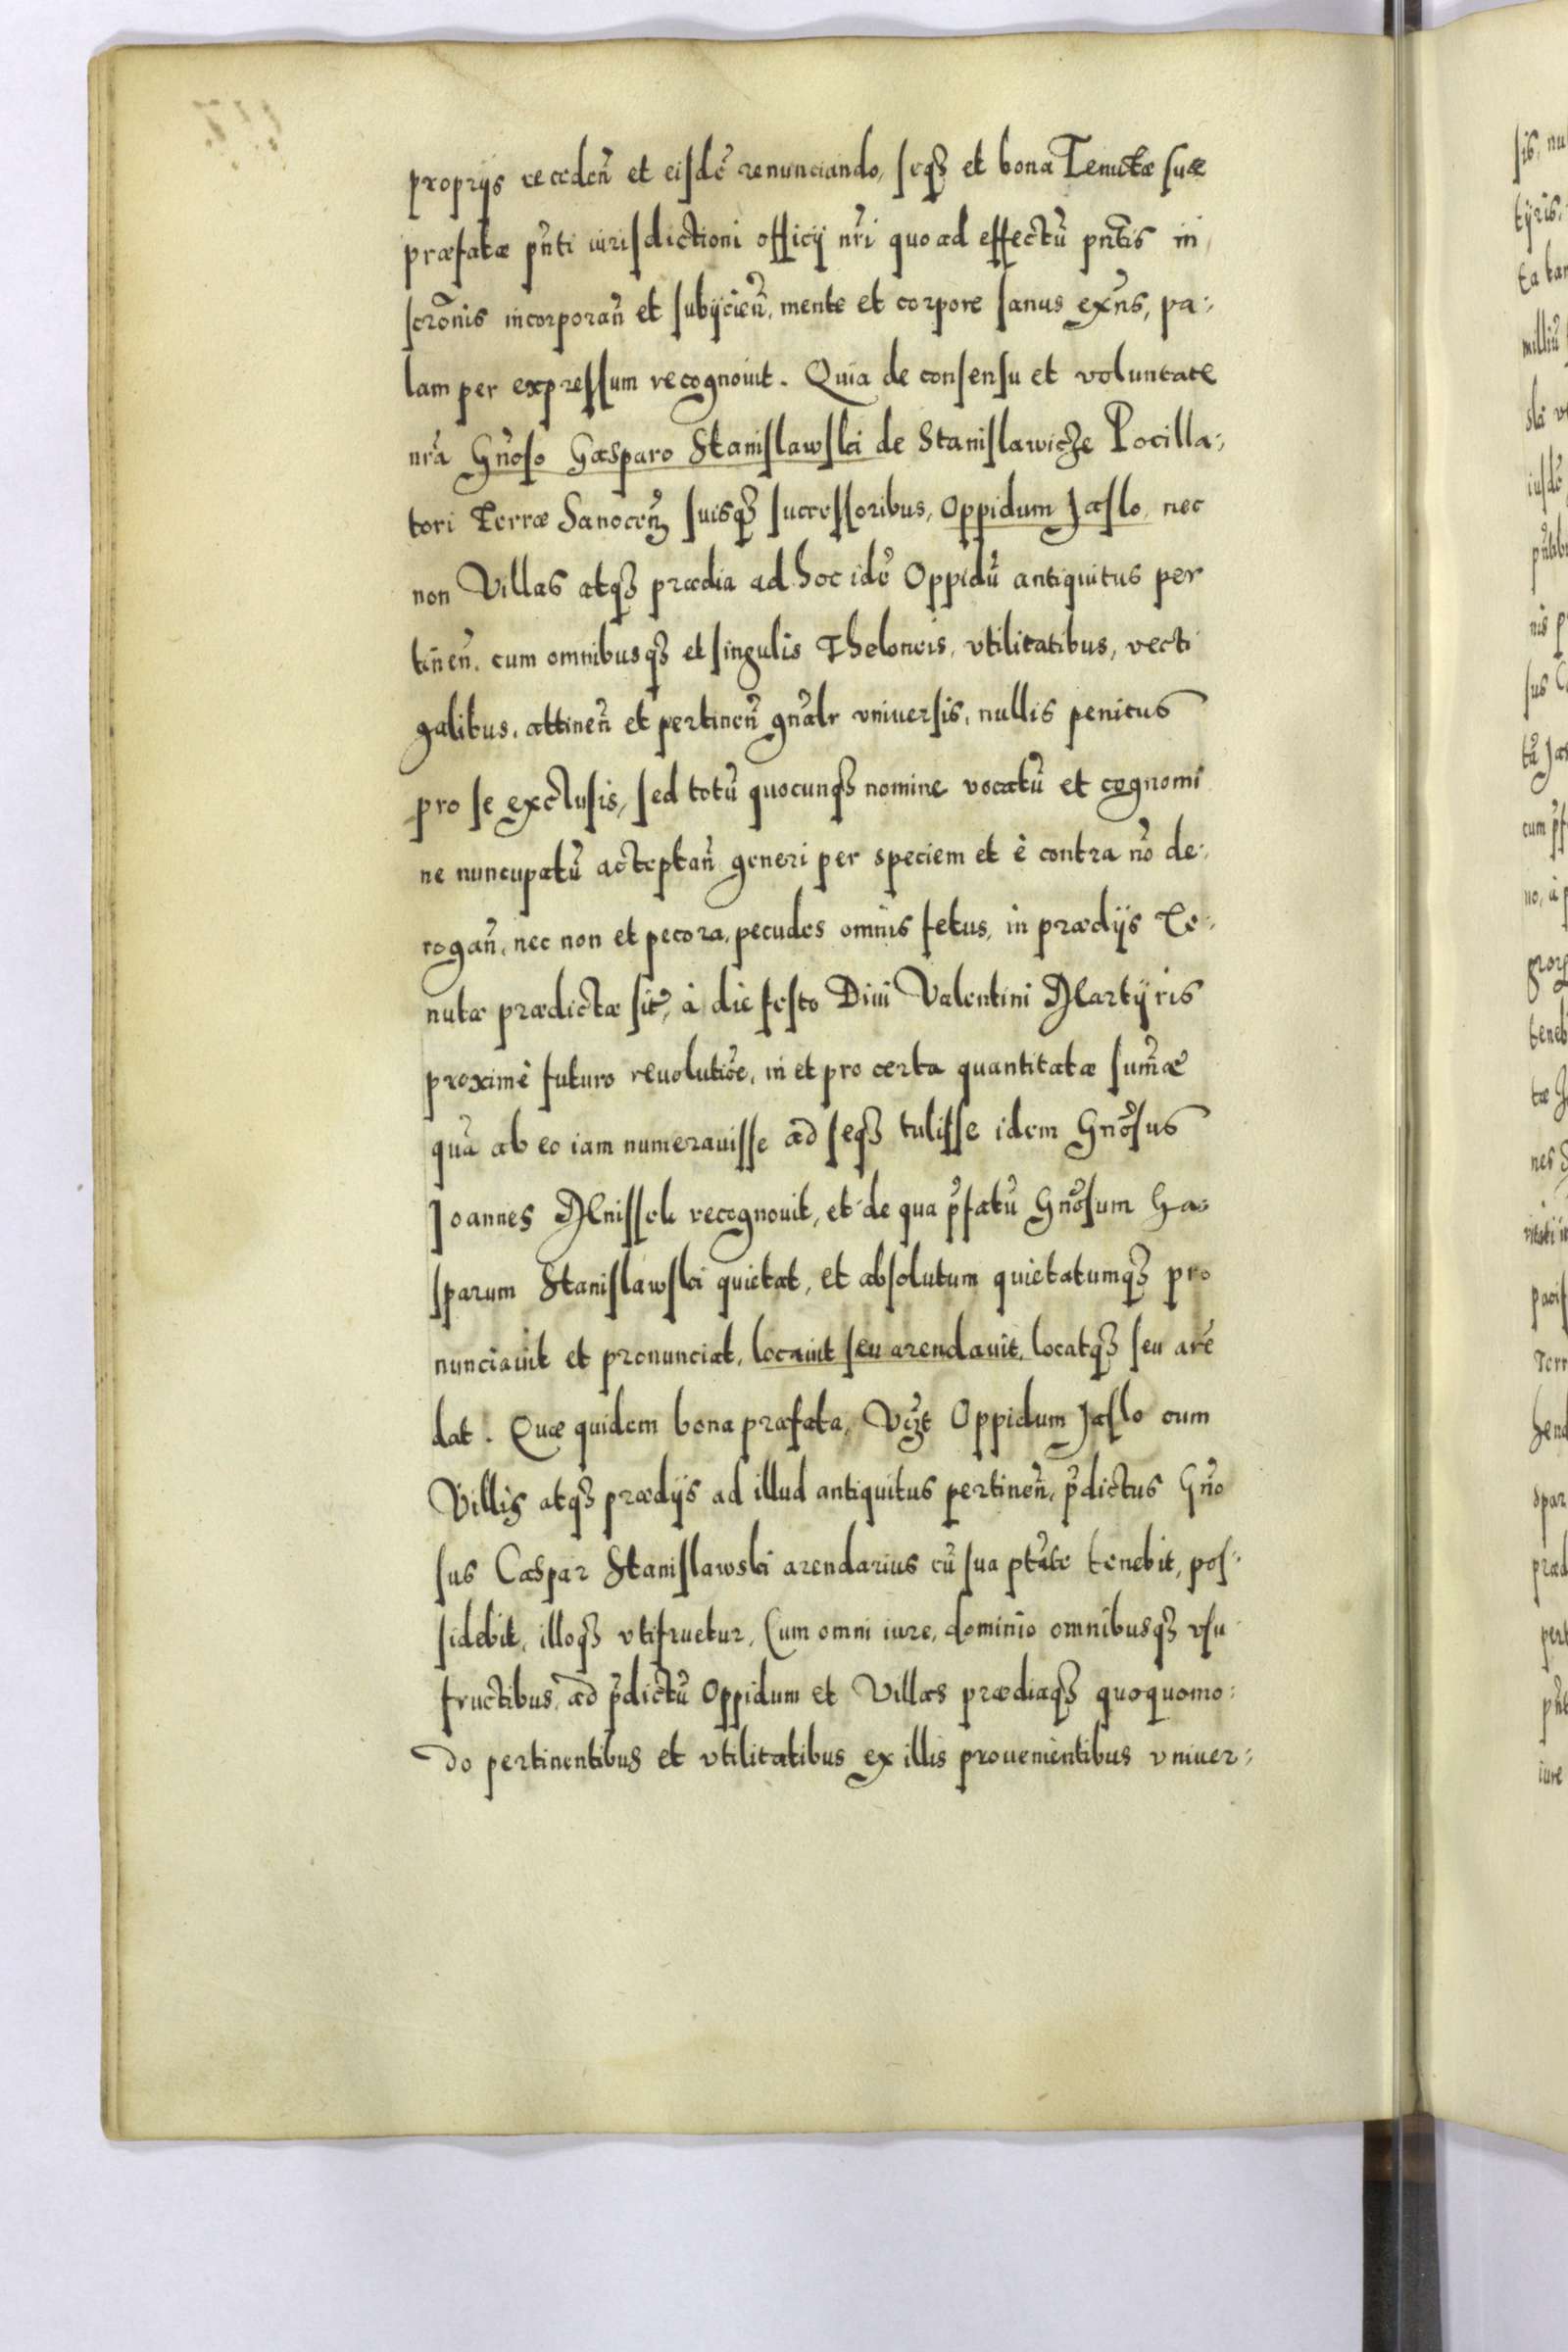 proprijs receden̄ et eisdē renunciando, seqȝ et bona Tenutæ suæ
præfatæ pn̄ti iurisdictioni officij nr̄i quo ad effectū pn̄tis in
scrōnis incorporan̄ et subijcien̄, mente et corpore sanus exn̄s, pa:
lam per expressum recognouit. Quia de consensu et voluntate
nr̄a Gn̄oso Gasparo Stanislawski de Stanislawicze Pocilla:
tori Terræ Sanocen̄ suisqȝ successoribus, Oppidum Jaslo, nec
non Villas atqȝ prædia ad hoc idē Oppidū antiquitus per
tinen̄. cum omnibusqȝ et singulis Theloneis, vtilitatibus, vecti
galibus, attinen̄ et pertinen̄ gn̄alr vniuersis, nullis penitus
pro se exclusis, sed totū quocunqȝ nomine vocatū et cognomi
ne nuncupatū acceptan̄ generi per speciem et è contra nō de:
rogan̄, nec non et pecora, pecudes omnis fetus, in prædijs Te:
nutæ prædictæ sit̄, à die festo Diui Valentini Martijris
proximè futuro reuolutiōe, in et pro certa quantitatæ sum̄æ
quā ab eo iam numerauisse ad seqȝ tulisse idem Gnōsus
Joannes Mnissek recognouit, et de qua p̄fatū Gnōsum Ga:
sparum Stanislawski quietat, et absolutum quietatumqȝ pro
nunciauit et pronunciat, locauit seu arendauit, locatqȝ seu arē
dat. Quæ quidem bona præfata, Vizt Oppidum Jaslo cum
Villis atqȝ prædijs ad illud antiquitus pertinen̄, p̄dictus Gn̄o
sus Caspar Stanislawski arendarius cū sua pt̄ate tenebit, pos:
sidebit, illoqȝ vtifruetur, Cum omni iure, dominio omnibusqȝ vsu
fructibus, ad p̄dictū Oppidum et Villas prædiaqȝ quoquomo:
do pertinentibus et vtilitatibus ex illis prouenientibus vniuer: